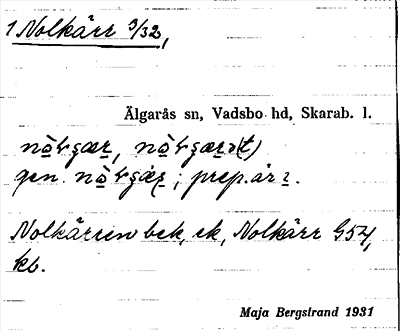 1 Nolkärr 3/32,
Älgarås sn, Vadsbo hd, Skarab. l.
gen. ; prep. är i.
Nolkärren bek, ek, Nolkärr G54,
kb.
Maja Bergstrand 1931